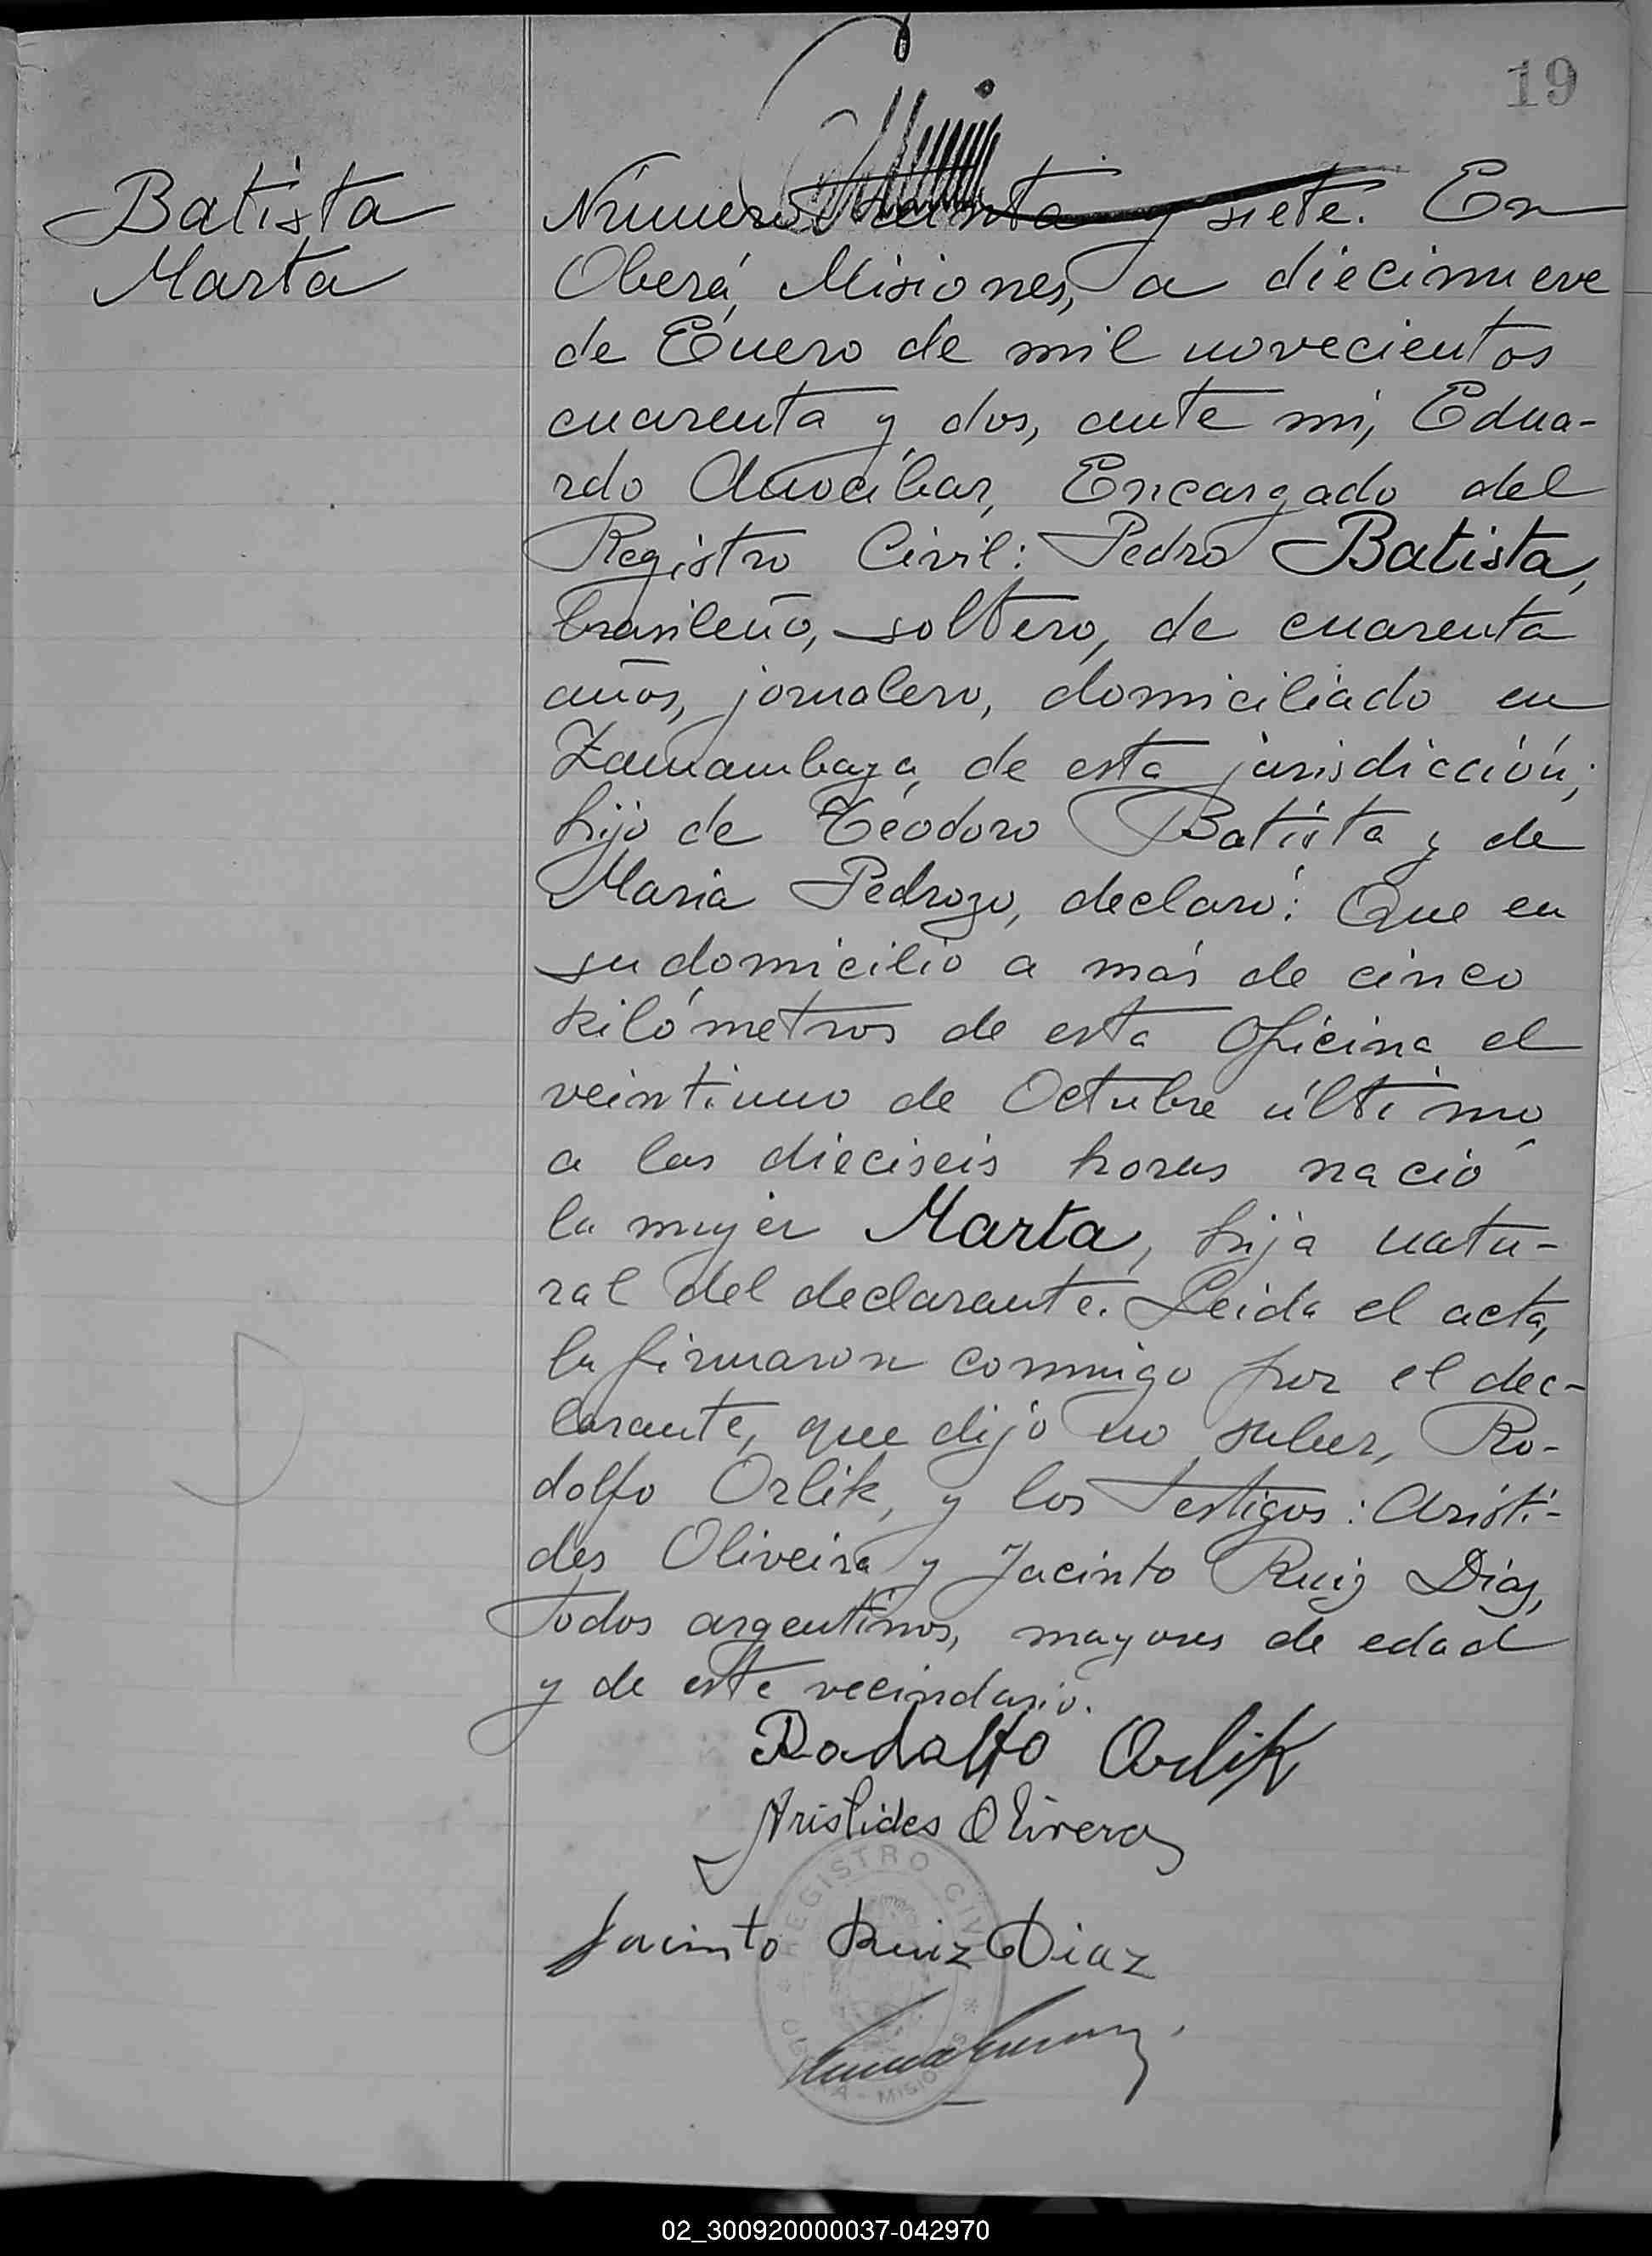 19
Batista
Marta
Número Treinta y siete. En
Oberá, Misiones, a diecinueve
de Enero de mil novecientos
cuarenta y dos, ante mi, Edua-
rdo Anocibar, Encargado del
Registro Civil: Pedro Batista,
brasileño, soltero, de cuarenta
años, jornalero, domiciliado en
de esta jurisdicción;
hijo de Teodoro Batista y de
Maria Pedrozo, declaró: Que en
su domicilio a más de cinco
kilómetros de esta Oficina el
veintiuno de Octubre último
a las dieciseis horas nació
la mujer Marta, hija natu-
ral del declarante. Leida el acta,
la firmaron conmigo por el dec-
larante, que dijo no saber, Ro-
dolfo Orlik, y los testigos: Aristi-
des Oliveira y Jacinto Ruiz Diaz,
todos argentinos, mayores de edad
y de este vecindario.
Rodolfo Orlik
Aristides Olivera
Jacinto Ruiz Diaz
REGISTRO CIVIL
OBERA - MISIONES
02_300920000037-042970